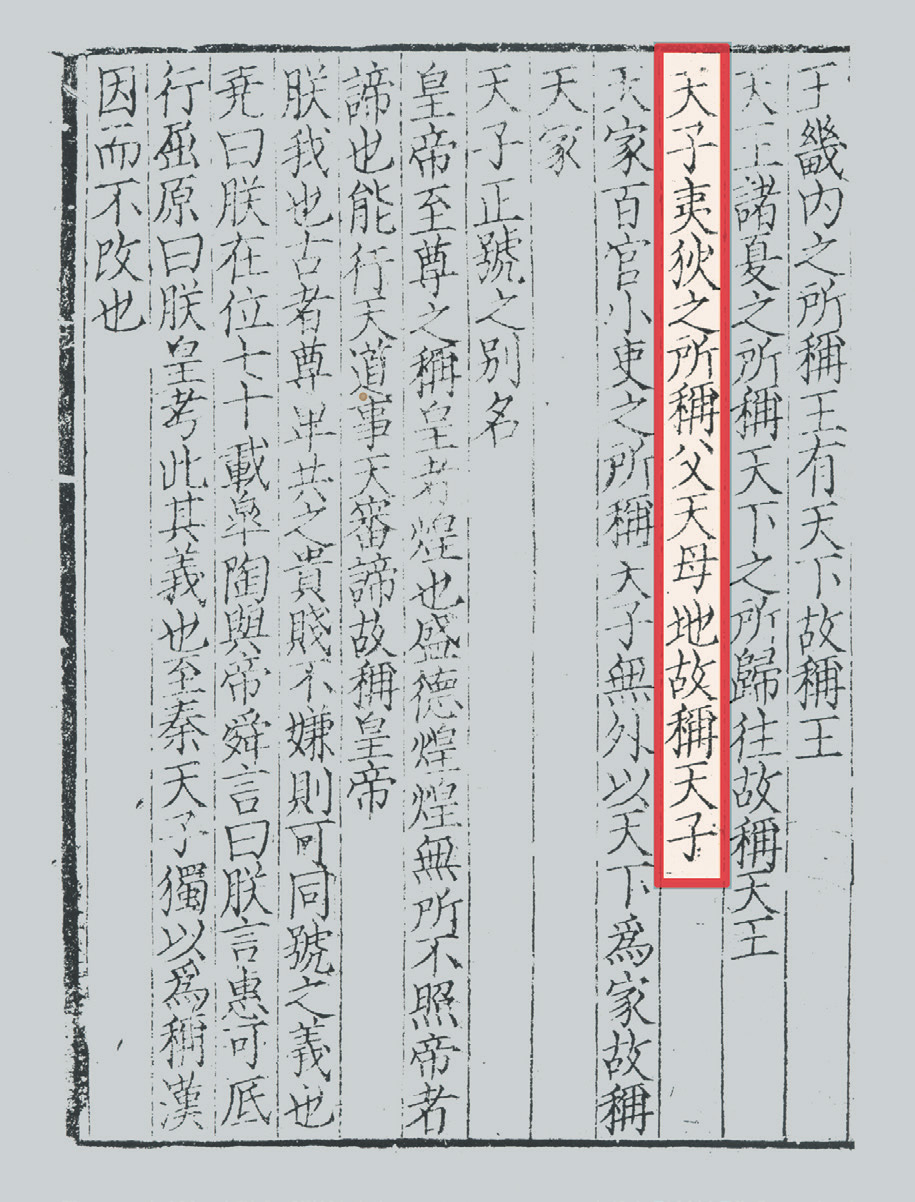 王畿内之所稱王有天下故稱王
天王諸夏之所稱天下之所歸往故稱天王
天子夷狄之所稱父天母地故稱天子
天家百官小吏之所稱天子無外以天下爲家故稱
天家
天子正號之别名
皇帝至尊之稱皇者煌也盛德煌煌無所不照帝者
諦也能行天道事天審諦故稱皇帝
朕我也古者尊卑共之貴賤不嫌則可同號之義也
堯曰朕在位七十載臯陶與帝舜言曰朕言惠可厎
行屈原曰朕皇考此其義也至秦天子獨以爲稱漢
因而不改也